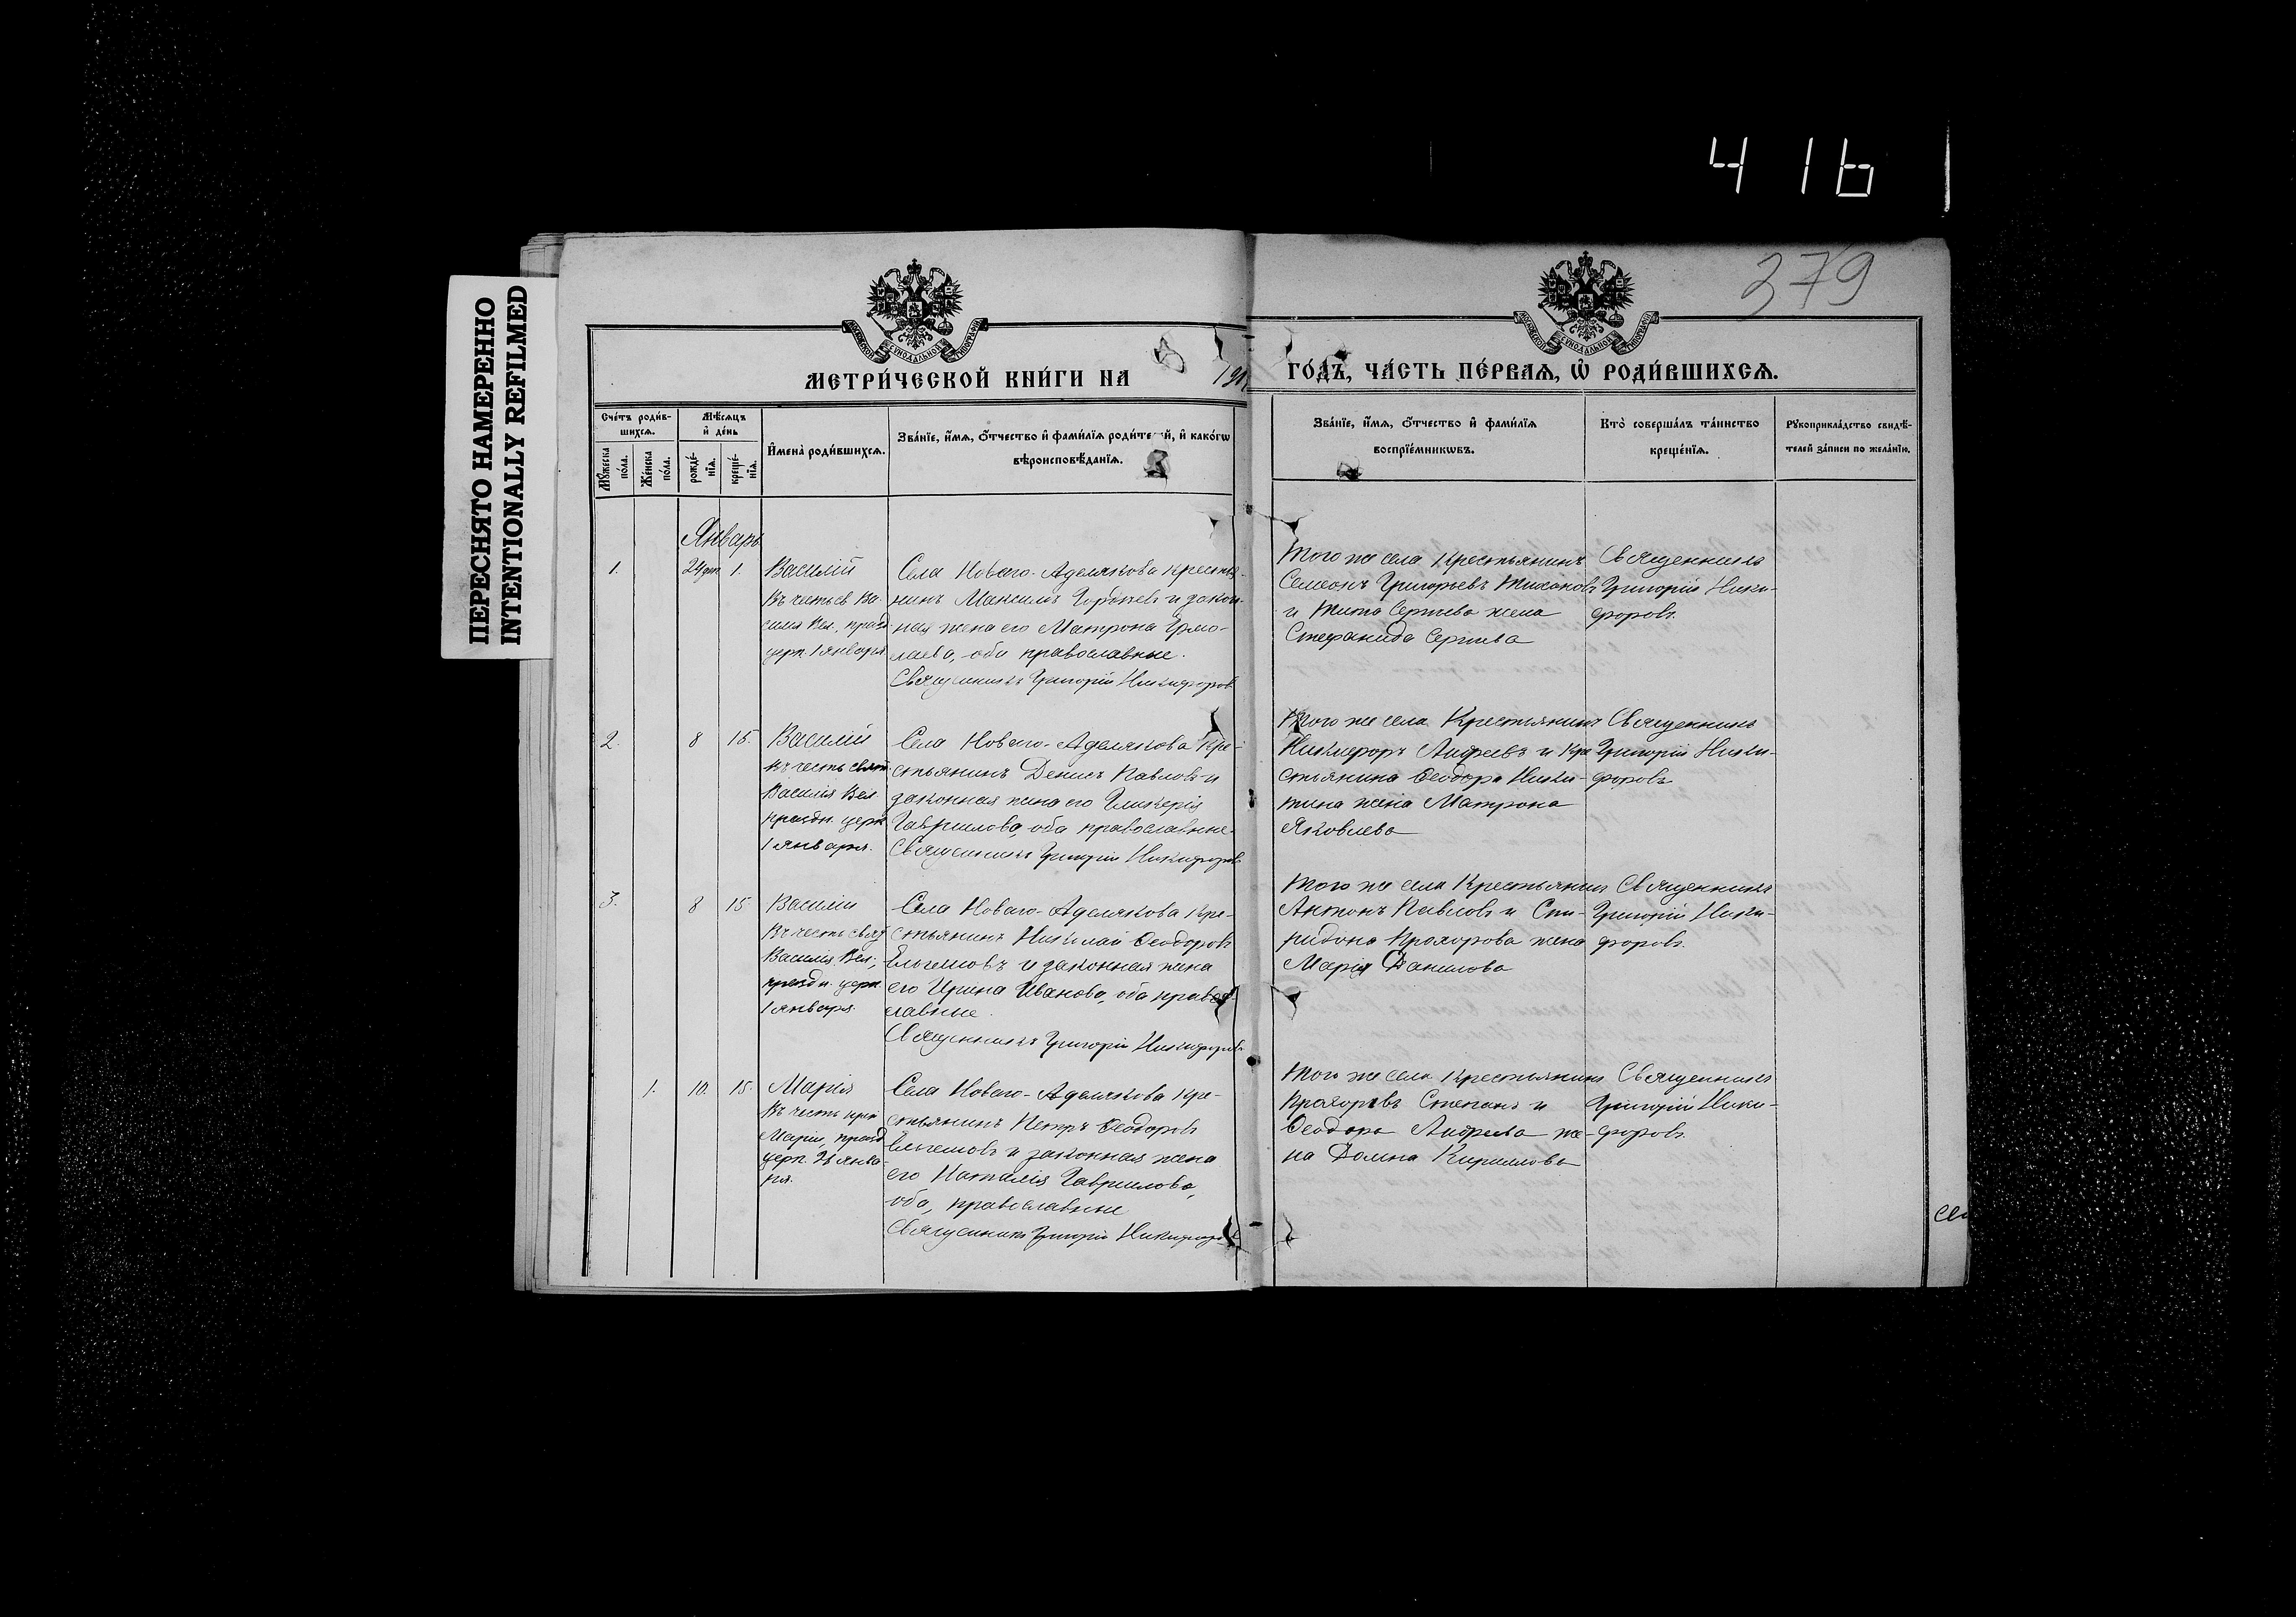 416
379
ПЕРЕСНЯТО НАМЕРЕННО
INTENTIONALLY REFILMED
МОСКОВСКОЙ СѴНОДАЛЬНОЙ ТИПОГРАФІИ
МОСКОВСКОЙ СѴНОДАЛЬНОЙ ТИПОГРАФІИ
МЕТРИ́ЧЕСКОЙ КНИ́ГИ НА
ГО́ДЪ, ЧА́СТЬ ПЕ́РВАѦ, Ѡ҆ РОДИ́ВШИХСѦ.
Сче́тъ роди́в-
шихсѧ.
Мꙋ́жеска по́ла.
Же́нска по́ла.
Мѣ́сѧцъ
и҆ де́нь
рожде́-
нїѧ.
креще́-
нїѧ.
И҆мена̀ роди́вшихсѧ.
Зва́нїе, и҆́мѧ, ѻ҆́тчество и҆ фами́лїѧ роди́телей, и҆ како́гѡ
вѣроисповѣ́данїѧ.
Зва́нїе, и҆́мѧ, ѻ҆́тчество и҆ фами́лїѧ
воспрїе́мникѡвъ.
Кто̀ соверша́лъ та́инство
креще́нїѧ.
Рꙋкоприкла́дство свидѣ́-
телей за́писи по жела́нїю.
Январь
1.
1.
Василій
Въ честь св. Ва-
силія Вел., празд.
церк. 1 января.
Села Новаго-Аделякова крестья-
нинъ Максимъ и закон-
ная жена его Матрона Ермо-
лаева, оба православные.
Священникъ Григорій Никифоровъ
Того же села Крестьянинъ
Симеонъ Григорьевъ Тихоновъ
и Тита Сергѣева жена
Стефанида Сергѣева
Священникъ
Григорій Ники-
форовъ.
2.
8
15.
Василій
въ честь свят.
Василія Вел.
праздн. церк.
1 января.
Села Новаго-Аделякова Кре-
стьянинъ Денисъ Павловъ и
законная жена его Гликерія
Гаврилова, оба православные.
Священникъ Григорій Никифоровъ
Того же села Крестьянинъ
Никифоръ Андреевъ и кре
стьянина Ѳеодора Ники-
тина жена Матрона
Яковлева
Священникъ
Григорій Ники-
форовъ
3.
8
15
Василій
Въ честь свят.
Василія Вел.,
праздн. церк.
1 января.
Села Новаго-Аделякова Кре-
стьянинъ Николай Ѳеодоровъ
Ельгешовъ и законная жена
его Ирина Иванова, оба право-
славные.
Священникъ Григорій Никифоровъ
Того же села Крестьянинъ
Антонъ Павловъ и Спи-
ридона Прохорова жена
Марія Данилова
Священникъ
Григорій Ники-
форовъ.
1.
10.
15.
Марія
Въ честь преп.
Маріи, празд.
церк. 26 янва-
ря.
Села Новаго-Аделякова Кре-
стьянинъ Петръ Ѳеодоровъ
Ельгешовъ и законная жена
его Наталія Гаврилова,
оба, православные
Священникъ Григорій Никифоровъ
Того же села Крестьянинъ
Прохоровъ Степанъ и
Ѳеодора Андреева же-
на Домна Кириллова
Священникъ
Григорій Ники-
форовъ.